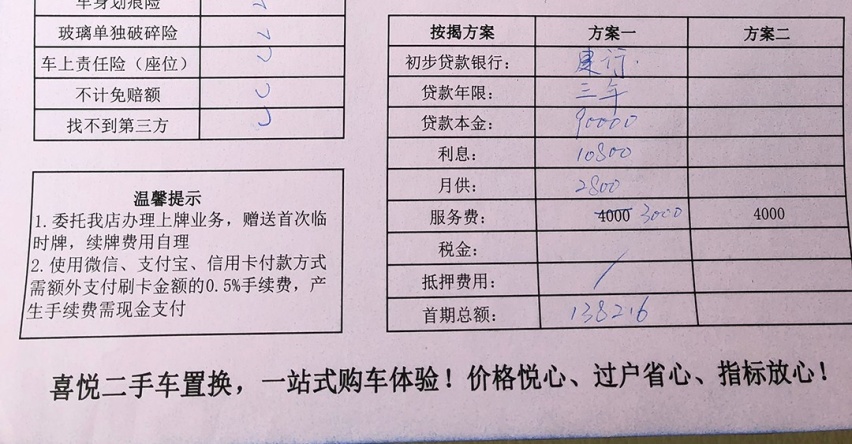 车身划痕险 ✓
玻璃单独破碎险 ✓
车上责任险（座位） ✓
不计免赔额 ✓
找不到第三方 ✓
按揭方案 方案一 方案二
初步贷款银行： 建行.
贷款年限： 三年
贷款本金： 90000
利息： 10800
月供： 2800
服务费： 4000 3000 4000
税金：
抵押费用： /
首期总额： 138216
温馨提示
1. 委托我店办理上牌业务，赠送首次临
时牌，续牌费用自理
2. 使用微信、支付宝、信用卡付款方式
需额外支付刷卡金额的0.5%手续费，产
生手续费需现金支付
喜悦二手车置换，一站式购车体验！价格悦心、过户省心、指标放心！